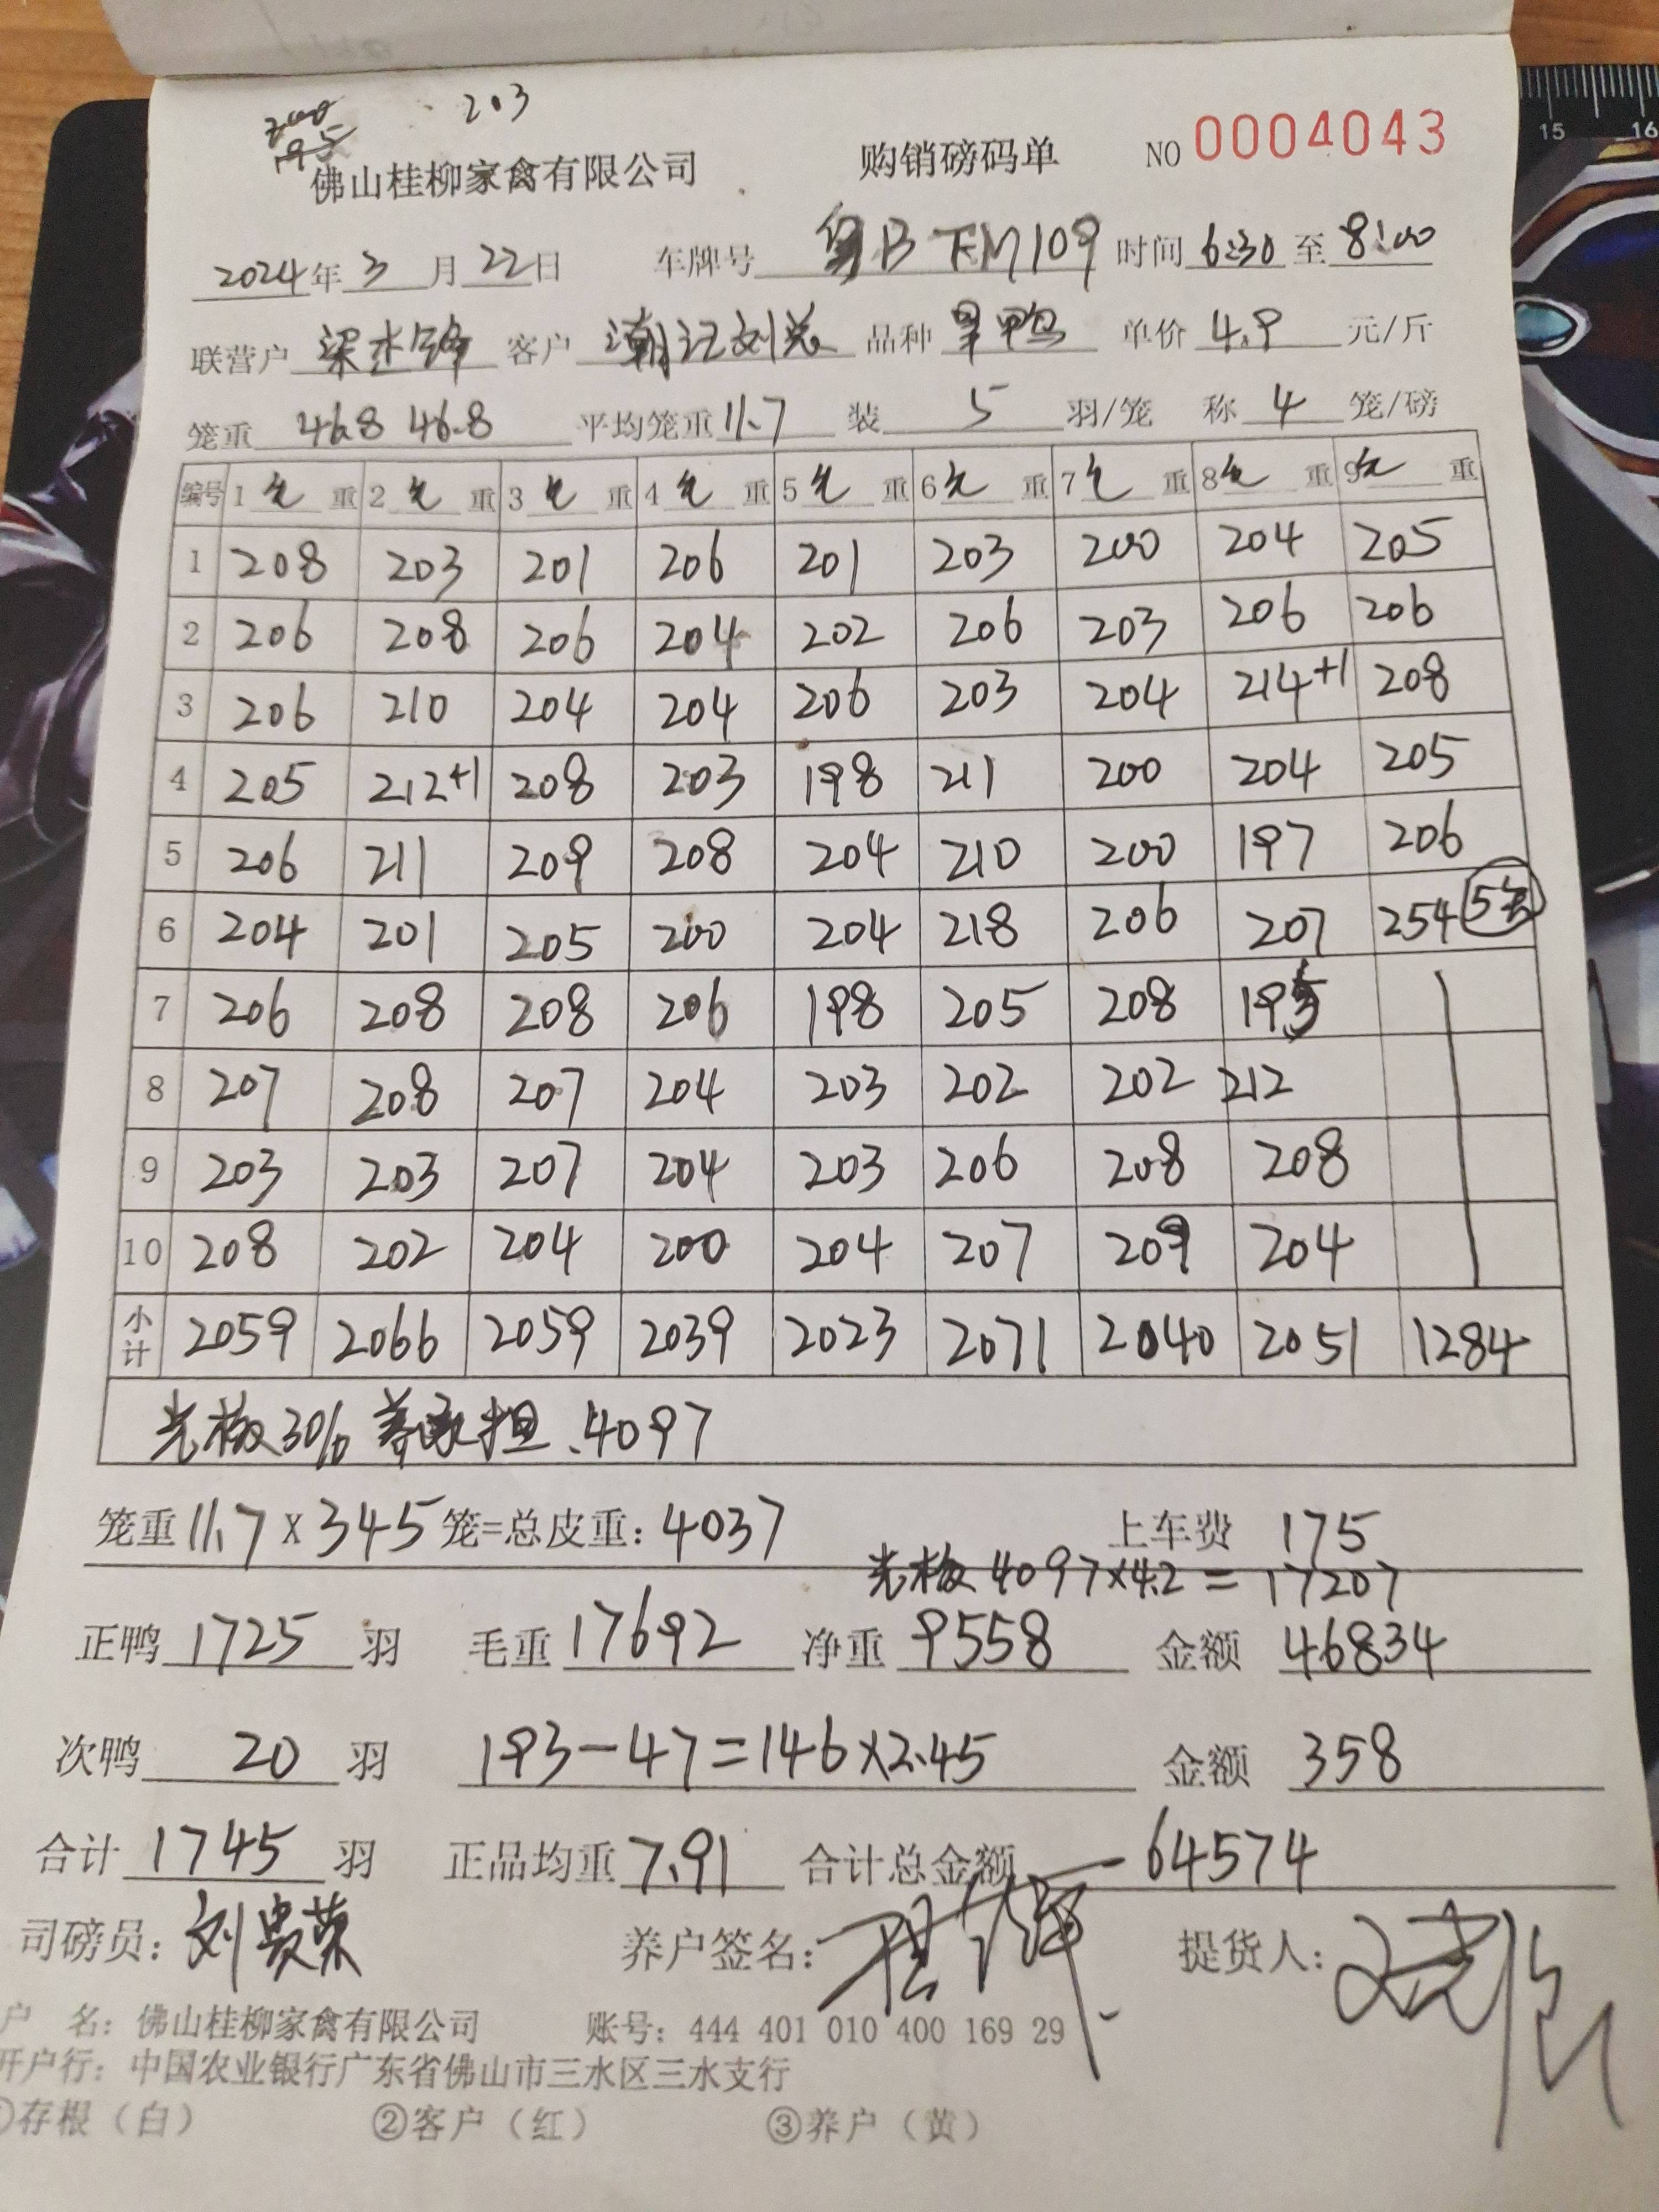 203
195
佛山桂柳家禽有限公司 购销磅码单 NO 0004043
2024年3月22日 车牌号 粤B FM109 时间 6:30 至 8:00
联营户 梁 锋 客户 潮记刘总 品种 旱鸭 单价 4.9 元/斤
笼重 46.8 46.8 平均笼重 11.7 装 5 羽/笼 称 4 笼/磅
编号 1 毛 重 2 毛 重 3 毛 重 4 毛 重 5 毛 重 6 毛 重 7 毛 重 8 毛 重 9 毛 重
1 208 203 201 206 201 203 200 204 205
2 206 208 206 204 202 206 203 206 206
3 206 210 204 204 206 203 204 214+1 208
4 205 212+1 208 203 198 211 200 204 205
5 206 211 209 208 204 210 200 197 206
6 204 201 205 200 204 218 206 207 254 5笼
7 206 208 208 206 198 205 208 195
8 207 208 207 204 203 202 202 212
9 203 203 207 204 203 206 208 208
10 208 202 204 200 204 207 209 204
小计 2059 2066 2059 2039 2023 2071 2040 2051 1284
光板30% 养家担.4097
笼重 11.7 x 345 笼=总皮重: 4037 上车费 175
光板 4097×4.2 = 17207
正鸭 1725 羽 毛重 17692 净重 9558 金额 46834
次鸭 20 羽 193-47=146×2.45 金额 358
合计 1745 羽 正品均重 7.91 合计总金额 64574
司磅员: 刘贵荣 养户签名: 提货人:
户 名: 佛山桂柳家禽有限公司 账号: 444 401 010 400 169 29
开户行: 中国农业银行广东省佛山市三水区三水支行
①存根(白) ②客户(红) ③养户(黄)
15 16